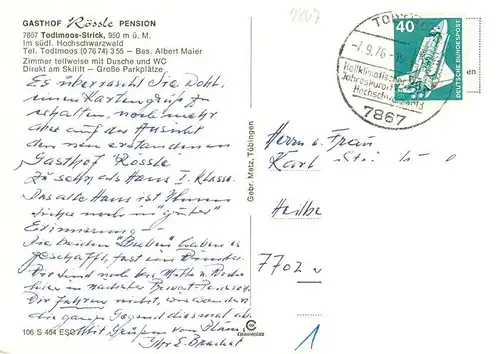 GASTHOF Rössle PENSION
7867 Todtmoos-Strick, 950 m ü. M.
Im südl. Hochschwarzwald
Tel. Todtmoos (07674) 3 55 – Bes. Albert Maier
Zimmer teilweise mit Dusche und WC
Direkt am Skilift – Große Parkplätze
Es überrascht Sie wohl,
einen Kartengruß zu
erhalten, noch mehr
aber auf der Ansicht
den neu erstandenen
Gasthof Rössle
zu sehn als Haus I. Klasse.
Das alte Haus ist Ihnen
sicher noch in "guter"
Erinnerung –
Die beiden "Buben" haben es
geschafft, fast ein
noch bei
hier in
Die fahren nicht, wir wandern
die ganze Gegend diesmal ab.
Mit Grüßen von
Ihr E.
106 S 464 ESC
Gebr. Metz, Tübingen
7867
TOD
-7.9.76-15
Heilklimatischer
Jahreskurort
Hochschwarzwald
7867
40
DEUTSCHE BUNDESPOST
en
Herrn u. Frau
Karl
Heilb
7702
1